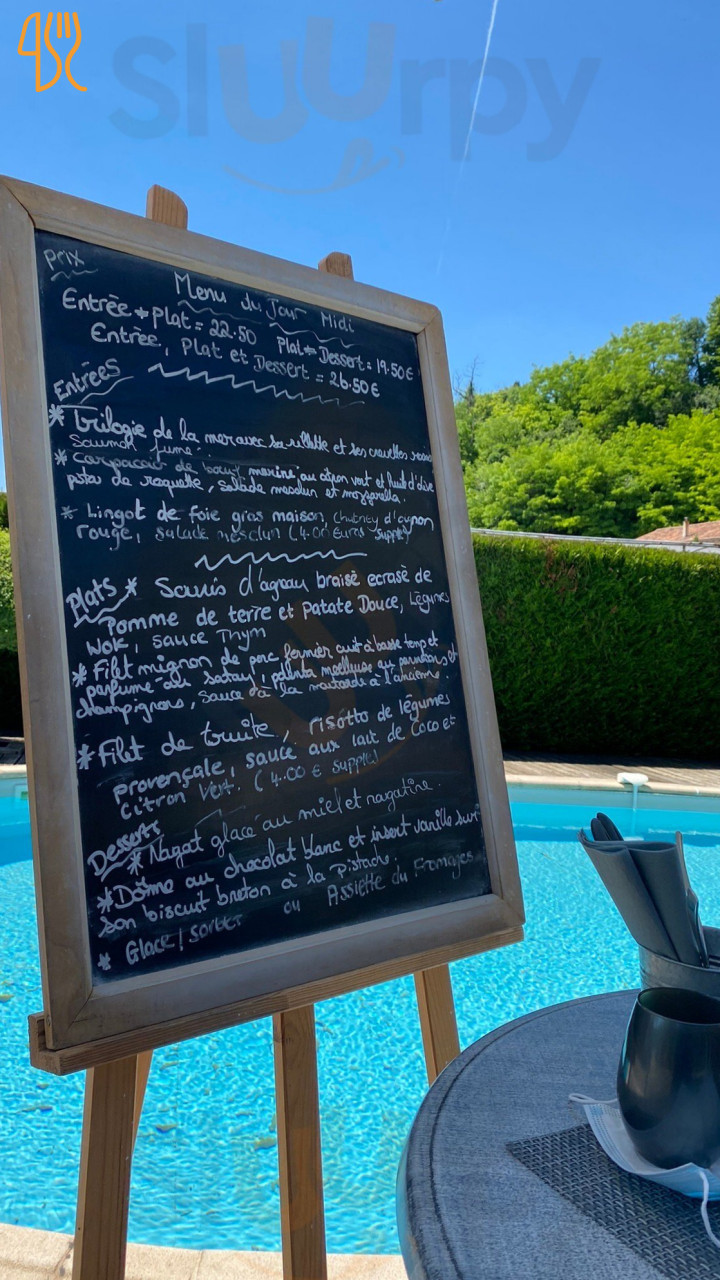 Sluurpy
Prix
Menu du Jour Midi
Entrée + Plat = 22.50 Plat + Dessert = 19.50€
Entrée, Plat et Dessert = 26.50€
Entrées
* Trilogie de la mer avec sa rillette et ses crevettes
Saumon fumé.
* Carpaccio de boeuf mariné au citron vert et huile d'olive
pistou de roquette, salade mesclun et mozzarella.
* Lingot de foie gras maison, chutney d'oignon
rouge, salade mesclun (4.00 Euros Supplé)
Plats
* Souris d'agneau braisé ecrasé de
Pomme de terre et Patate Douce, Légumes
Wok, sauce Thym
* Filet mignon de porc fermier cuit à basse temp et
parfumé au Satay, polenta moelleuse au parmesan et
champignons, Sauce à la moutarde à l'ancienne.
* Filet de truite, risotto de légumes
provençale, sauce aux lait de Coco et
Citron Vert. (4.00 € supplé)
Desserts
* Nugat glacé au miel et nougatine.
* Dôme au chocolat blanc et insert vanille sur
son biscuit breton à la Pistache.
* Glace / Sorbet ou Assiette du Fromages